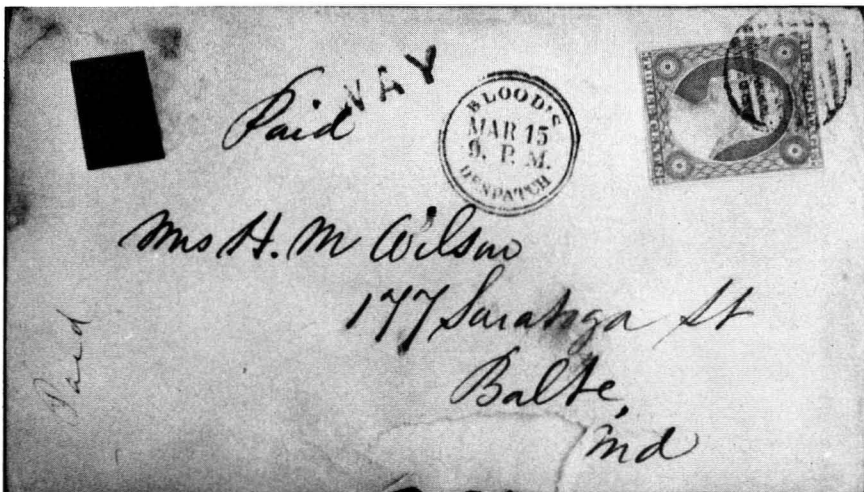 Paid
WAY
BLOOD'S
MAR 15
9. P. M.
DESPATCH
Mrs H. M Wilson
177 Saratoga St
Balte,
Md
Paid